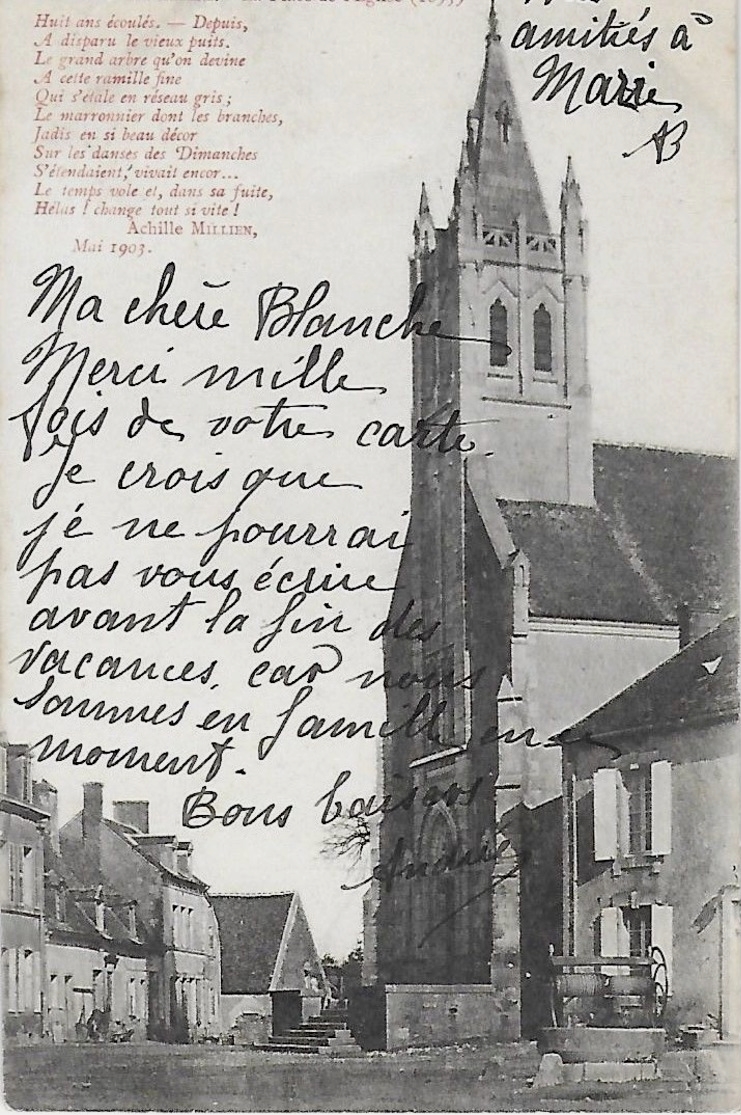 La Place de l'Église
Huit ans écoulés. — Depuis,
A disparu le vieux puits.
Le grand arbre qu'on devine
A cette ramille fine
Qui s'étale en réseau gris ;
Le marronnier dont les branches,
Jadis en si beau décor
Sur les danses des Dimanches
S'étendaient, vivait encor...
Le temps vole et, dans sa fuite,
Hélas ! change tout si vite !
Achille MILLIEN,
Mai 1903.
amitiés à
Marie
AB
Ma chère Blanche
Merci mille
fois de votre carte.
Je crois que
je ne pourrai
pas vous écrire
avant la fin des
vacances, car nous
sommes en famille en ce
moment.
Bons baisers
Andrée